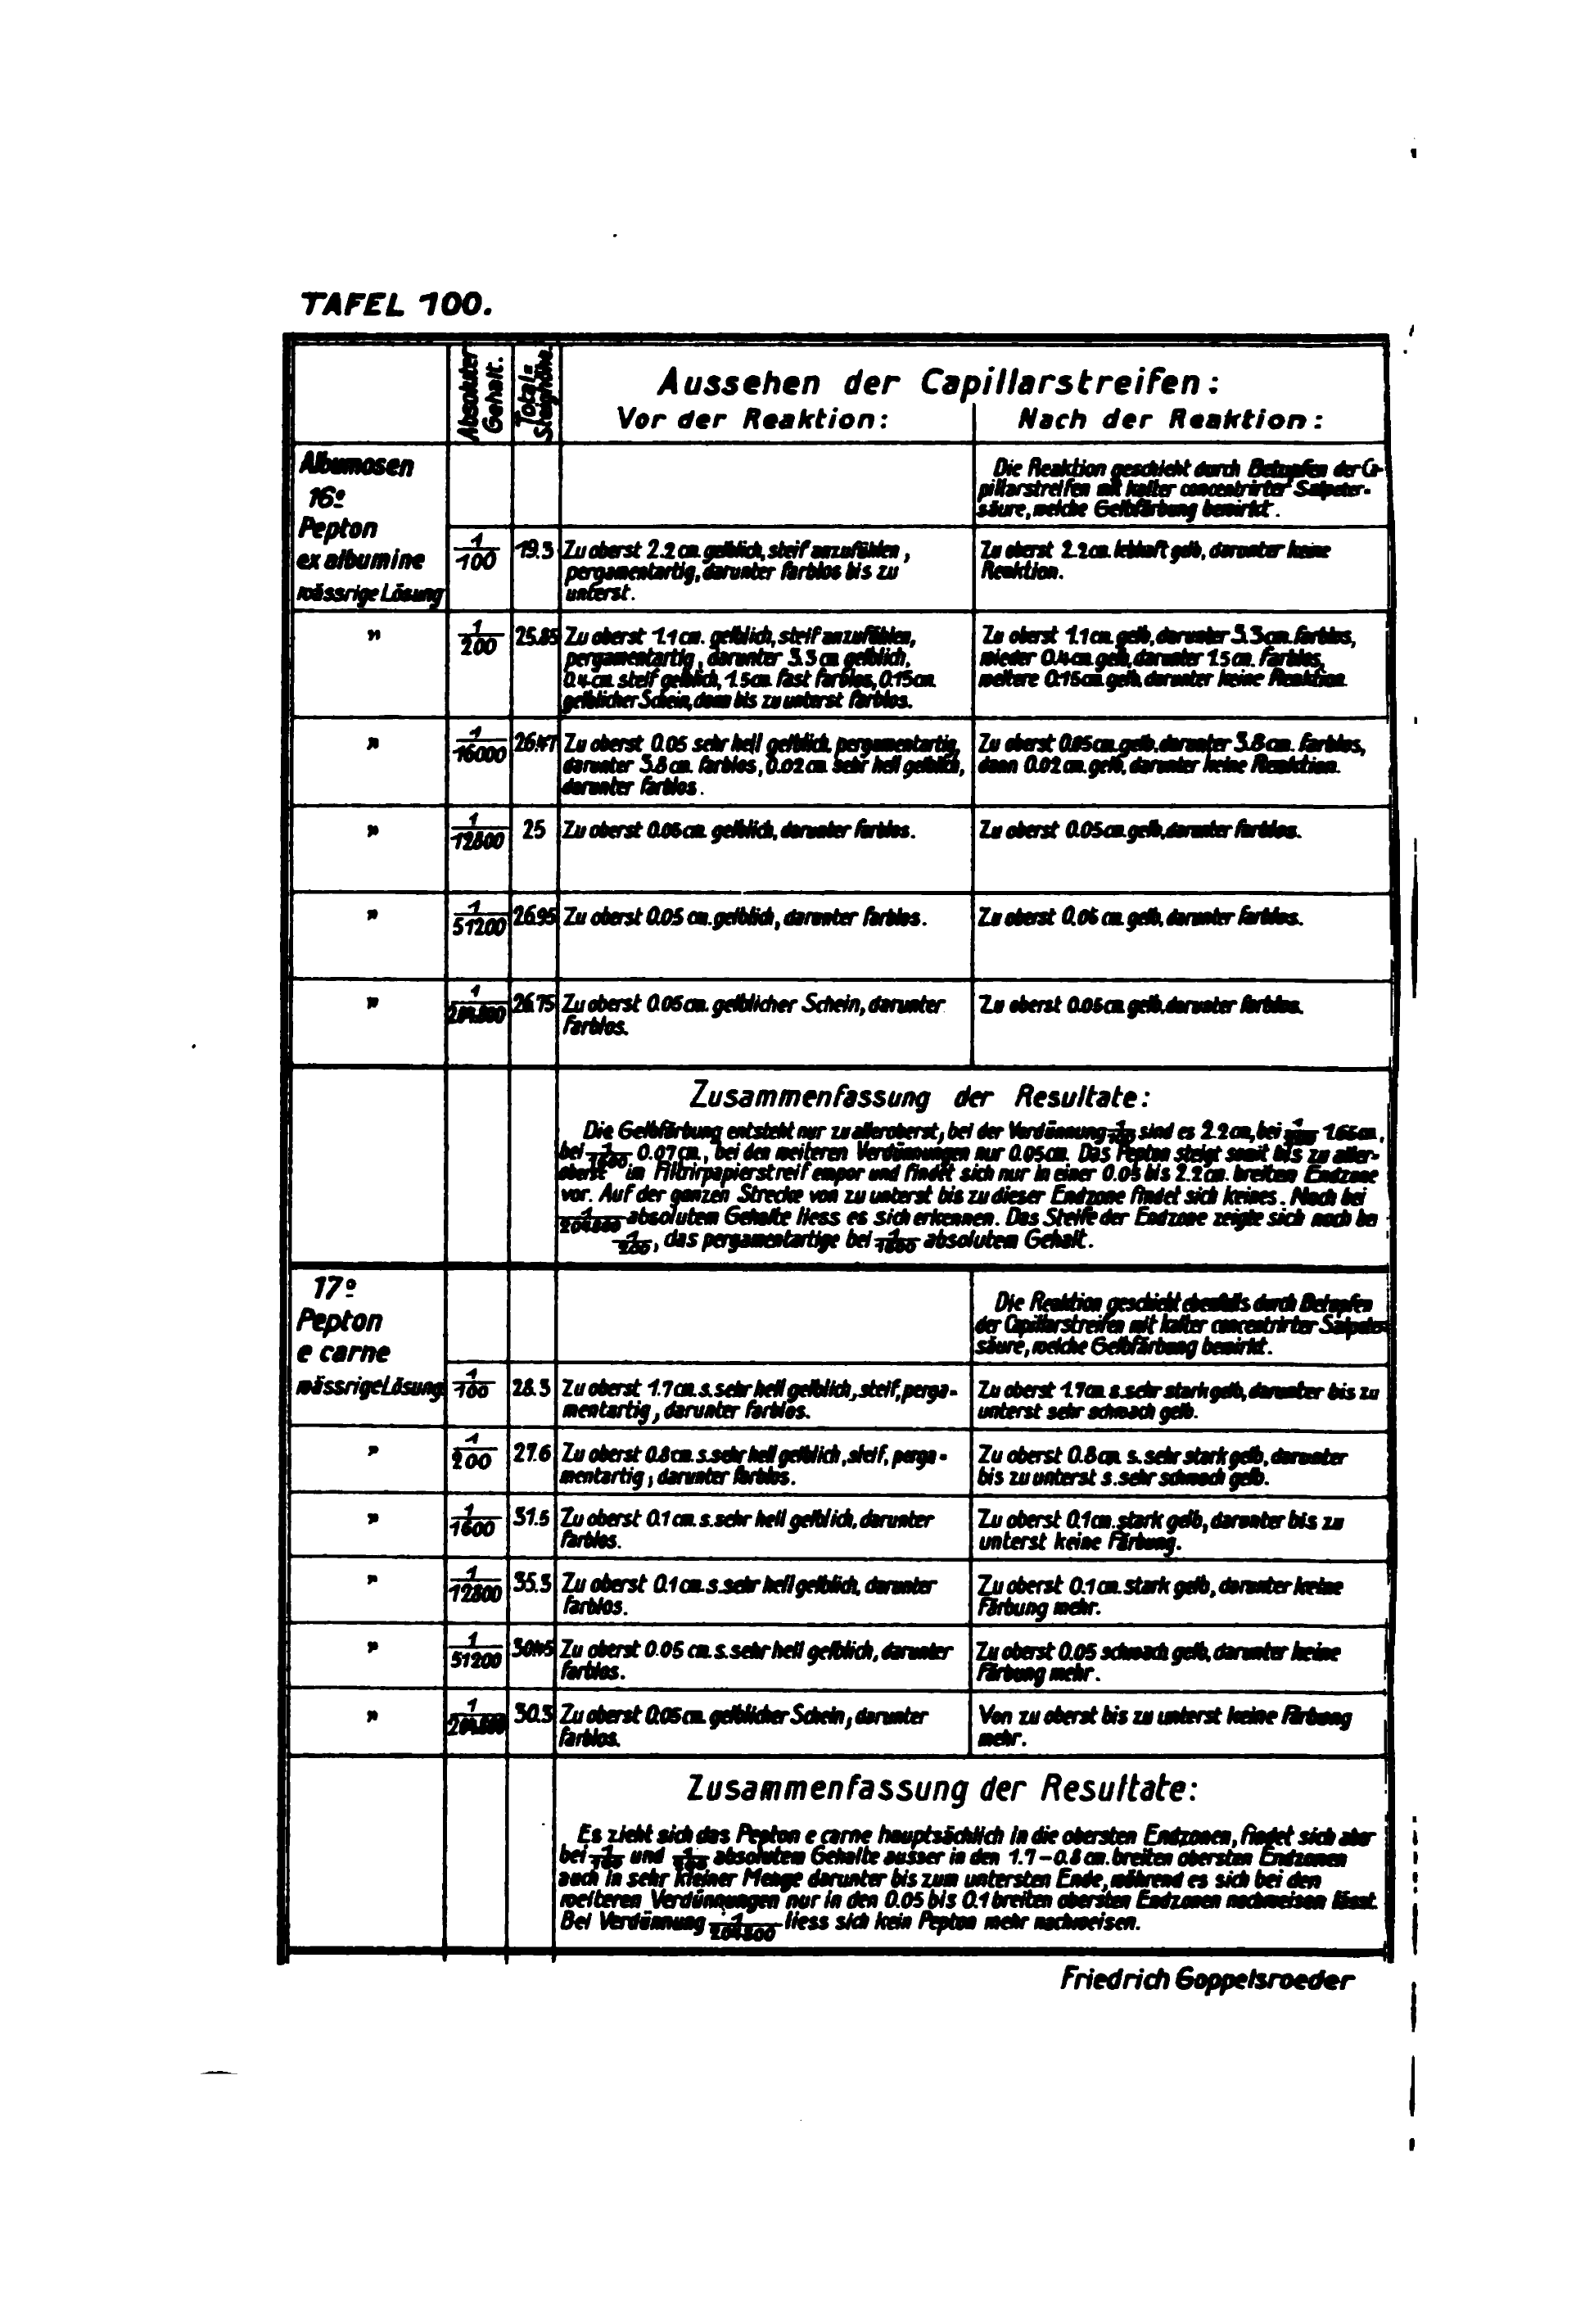 TAFEL 100.
Absoluter Gehalt.
Total= Steighöhe.
Aussehen der Capillarstreifen:
Vor der Reaktion:
Nach der Reaktion:
Albumosen
16º
Pepton
ex albumine
wässrige Lösung
Die Reaktion geschieht durch Betupfen der Ca-
pillarstreifen mit kalter concentrirter Salpeter-
säure, welche Gelbfärbung bewirkt.
1/100
19.3
Zu oberst 2.2 cm. gelblich, steif anzufühlen,
pergamentartig, darunter farblos bis zu
unterst.
Zu oberst 2.2 cm. lebhaft gelb, darunter keine
Reaktion.
"
1/200
25.85
Zu oberst 1.1 cm. gelblich, steif anzufühlen,
pergamentartig, darunter 3.3 cm gelblich,
0.4 cm. steif gelblich, 1.5 cm. fast farblos, 0.15 cm.
gelblicher Schein, dann bis zu unterst farblos.
Zu oberst 1.1 cm. gelb, darunter 3.3 cm. farblos,
wieder 0.4 cm. gelb, darunter 1.5 cm. farblos,
weitere 0.15 cm. gelb, darunter keine Reaktion.
"
1/16000
26.47
Zu oberst 0.05 sehr hell gelblich, pergamentartig,
darunter 3.8 cm. farblos, 0.02 cm. sehr hell gelblich,
darunter farblos.
Zu oberst 0.05 cm. gelb, darunter 3.8 cm. farblos,
dann 0.02 cm. gelb, darunter keine Reaktion.
"
1/12800
25
Zu oberst 0.05 cm. gelblich, darunter farblos.
Zu oberst 0.05 cm. gelb, darunter farblos.
"
1/51200
26.95
Zu oberst 0.05 cm. gelblich, darunter farblos.
Zu oberst 0.05 cm. gelb, darunter farblos.
"
1/204800
26.75
Zu oberst 0.05 cm. gelblicher Schein, darunter
farblos.
Zu oberst 0.05 cm. gelb, darunter farblos.
Zusammenfassung der Resultate:
Die Gelbfärbung entsteht nur zu alleroberst, bei der Verdünnung 1/100 sind es 2.2 cm, bei 1/200 1.65 cm,
bei 1/1600 0.07 cm., bei den weiteren Verdünnungen nur 0.05 cm. Das Pepton steigt somit bis zu aller-
oberst im Filtrirpapierstreif empor und findet sich nur in einer 0.05 bis 2.2 cm. breiten Endzone
vor. Auf der ganzen Strecke von zu unterst bis zu dieser Endzone findet sich keines. Noch bei
1/204800 absolutem Gehalte liess es sich erkennen. Das Steife der Endzone zeigte sich noch bei
1/200, das pergamentartige bei 1/1600 absolutem Gehalt.
17º
Pepton
e carne
wässrige Lösung
Die Reaktion geschieht ebenfalls durch Betupfen
der Capillarstreifen mit kalter concentrirter Salpeter=
säure, welche Gelbfärbung bewirkt.
1/100
28.3
Zu oberst 1.7 cm. s. sehr hell gelblich, steif, perga-
mentartig, darunter farblos.
Zu oberst 1.7 cm. s. sehr stark gelb, darunter bis zu
unterst sehr schwach gelb.
"
1/200
27.6
Zu oberst 0.8 cm. s. sehr hell gelblich, steif, perga-
mentartig, darunter farblos.
Zu oberst 0.8 cm. s. sehr stark gelb, darunter
bis zu unterst s. sehr schwach gelb.
"
1/1600
31.5
Zu oberst 0.1 cm. s. sehr hell gelblich, darunter
farblos.
Zu oberst 0.1 cm. stark gelb, darunter bis zu
unterst keine Färbung.
"
1/12800
35.3
Zu oberst 0.1 cm. s. sehr hell gelblich, darunter
farblos.
Zu oberst 0.1 cm. stark gelb, darunter keine
Färbung mehr.
"
1/51200
30.45
Zu oberst 0.05 cm. s. sehr hell gelblich, darunter
farblos.
Zu oberst 0.05 schwach gelb, darunter keine
Färbung mehr.
"
1/204800
30.3
Zu oberst 0.05 cm. gelblicher Schein, darunter
farblos.
Von zu oberst bis zu unterst keine Färbung
mehr.
Zusammenfassung der Resultate:
Es zieht sich das Pepton e carne hauptsächlich in die obersten Endzonen, findet sich aber
bei 1/100 und 1/200 absolutem Gehalte ausser in den 1.7 – 0.8 cm. breiten obersten Endzonen
auch in sehr kleiner Menge darunter bis zum untersten Ende, während es sich bei den
weiteren Verdünnungen nur in den 0.05 bis 0.1 breiten obersten Endzonen nachweisen lässt.
Bei Verdünnung 1/204800 liess sich kein Pepton mehr nachweisen.
Friedrich Goppelsroeder